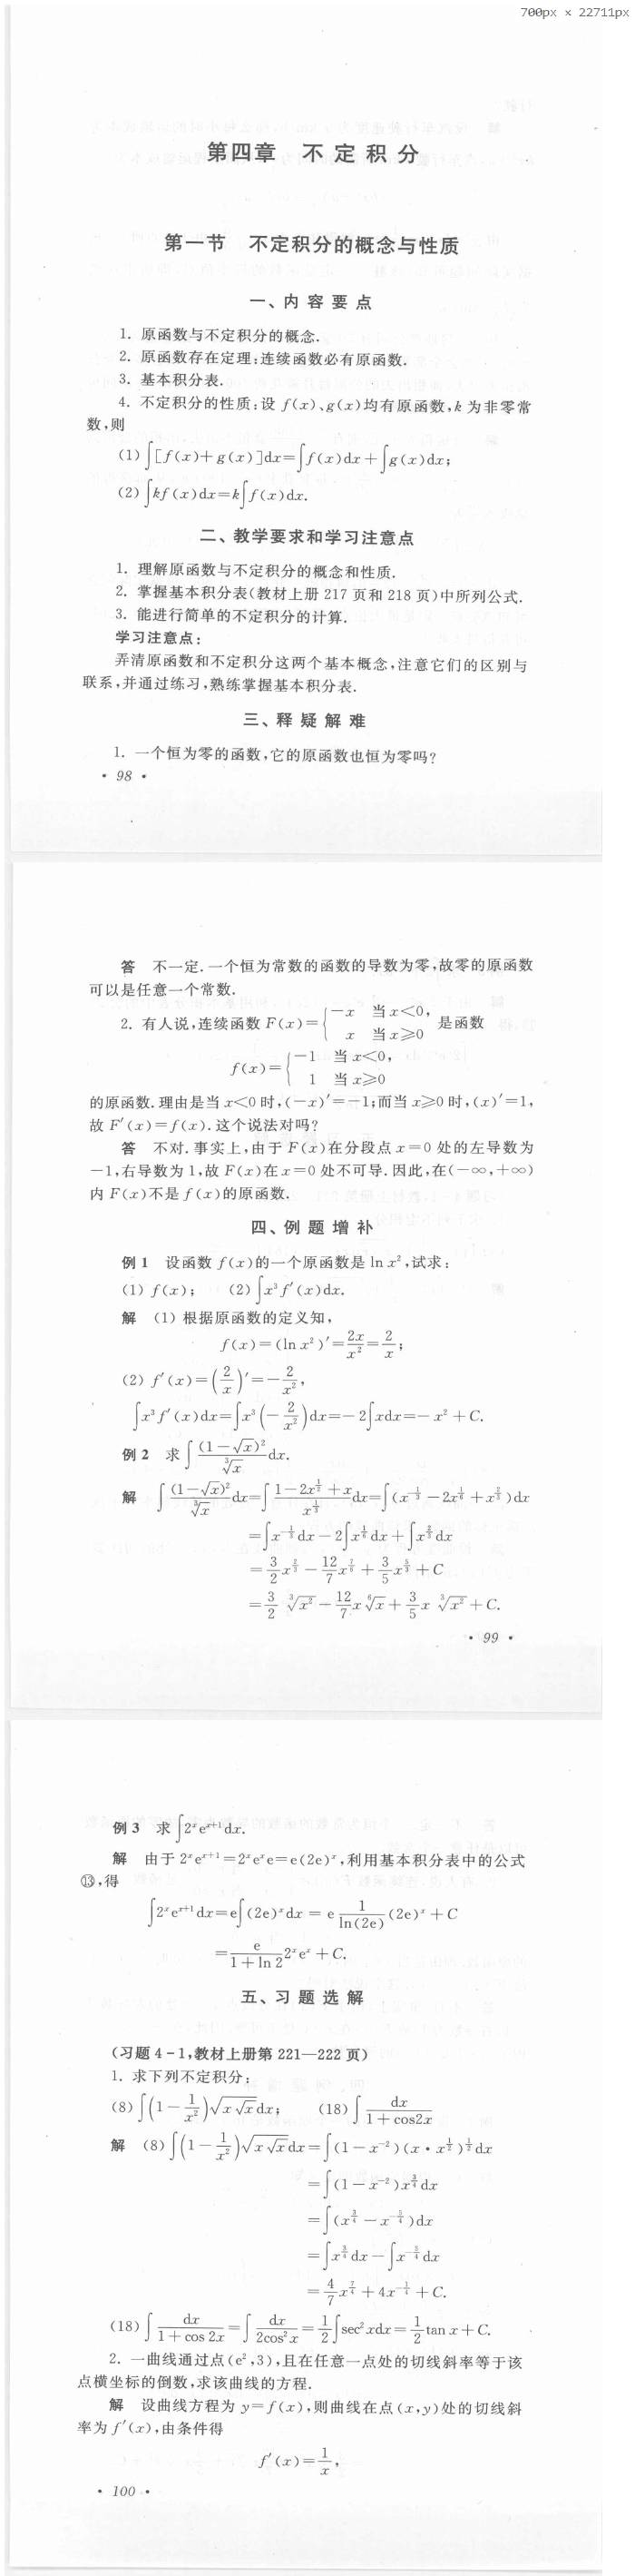 700px × 22711px
第四章 不定积分
第一节 不定积分的概念与性质
一、内容要点
1. 原函数与不定积分的概念.
2. 原函数存在定理:连续函数必有原函数.
3. 基本积分表.
4. 不定积分的性质:设 f(x)、g(x)均有原函数,k 为非零常
数,则
(1) ∫[f(x)+g(x)]dx=∫f(x)dx+∫g(x)dx;
(2) ∫kf(x)dx=k∫f(x)dx.
二、教学要求和学习注意点
1. 理解原函数与不定积分的概念和性质.
2. 掌握基本积分表(教材上册 217 页和 218 页)中所列公式.
3. 能进行简单的不定积分的计算.
学习注意点:
弄清原函数和不定积分这两个基本概念,注意它们的区别与
联系,并通过练习,熟练掌握基本积分表.
三、释疑解难
1. 一个恒为零的函数,它的原函数也恒为零吗?
· 98 ·
答 不一定.一个恒为常数的函数的导数为零,故零的原函数
可以是任意一个常数.
2. 有人说,连续函数 F(x)={ -x 当 x<0, x 当 x≥0 是函数
f(x)={ -1 当 x<0, 1 当 x≥0
的原函数.理由是当 x<0 时,(-x)′=-1;而当 x≥0 时,(x)′=1,
故 F′(x)=f(x).这个说法对吗?
答 不对.事实上,由于 F(x)在分段点 x=0 处的左导数为
-1,右导数为 1,故 F(x)在 x=0 处不可导.因此,在(-∞,+∞)
内 F(x)不是 f(x)的原函数.
四、例题增补
例 1 设函数 f(x)的一个原函数是 ln x²,试求:
(1) f(x); (2) ∫x³f′(x)dx.
解 (1) 根据原函数的定义知,
f(x)=(ln x²)′=2x/x²=2/x;
(2) f′(x)=(2/x)′=-2/x²,
∫x³f′(x)dx=∫x³(-2/x²)dx=-2∫xdx=-x²+C.
例 2 求∫(1-√x)²/∛x dx.
解 ∫(1-√x)²/∛x dx=∫(1-2x^(1/2)+x)/x^(1/3) dx=∫(x^(-1/3)-2x^(1/6)+x^(2/3))dx
=∫x^(-1/3)dx-2∫x^(1/6)dx+∫x^(2/3)dx
=3/2 x^(2/3)-12/7 x^(7/6)+3/5 x^(5/3)+C
=3/2 ∛x²-12/7 x ⁶√x+3/5 x ∛x²+C.
· 99 ·
例 3 求∫2ˣeˣ⁺¹dx.
解 由于 2ˣeˣ⁺¹=2ˣeˣe=e(2e)ˣ,利用基本积分表中的公式
⑬,得
∫2ˣeˣ⁺¹dx=e∫(2e)ˣdx=e 1/ln(2e) (2e)ˣ+C
=e/(1+ln 2) 2ˣeˣ+C.
五、习题选解
(习题 4-1,教材上册第 221—222 页)
1. 求下列不定积分:
(8) ∫(1-1/x²)√(x√x)dx; (18) ∫dx/(1+cos2x)
解 (8) ∫(1-1/x²)√(x√x)dx=∫(1-x⁻²)(x·x^(1/2))^(1/2)dx
=∫(1-x⁻²)x^(3/4)dx
=∫(x^(3/4)-x^(-5/4))dx
=∫x^(3/4)dx-∫x^(-5/4)dx
=4/7 x^(7/4)+4x^(-1/4)+C.
(18) ∫dx/(1+cos 2x)=∫dx/(2cos²x)=1/2∫sec²xdx=1/2 tan x+C.
2. 一曲线通过点(e²,3),且在任意一点处的切线斜率等于该
点横坐标的倒数,求该曲线的方程.
解 设曲线方程为 y=f(x),则曲线在点(x,y)处的切线斜
率为 f′(x),由条件得
f′(x)=1/x,
· 100 ·